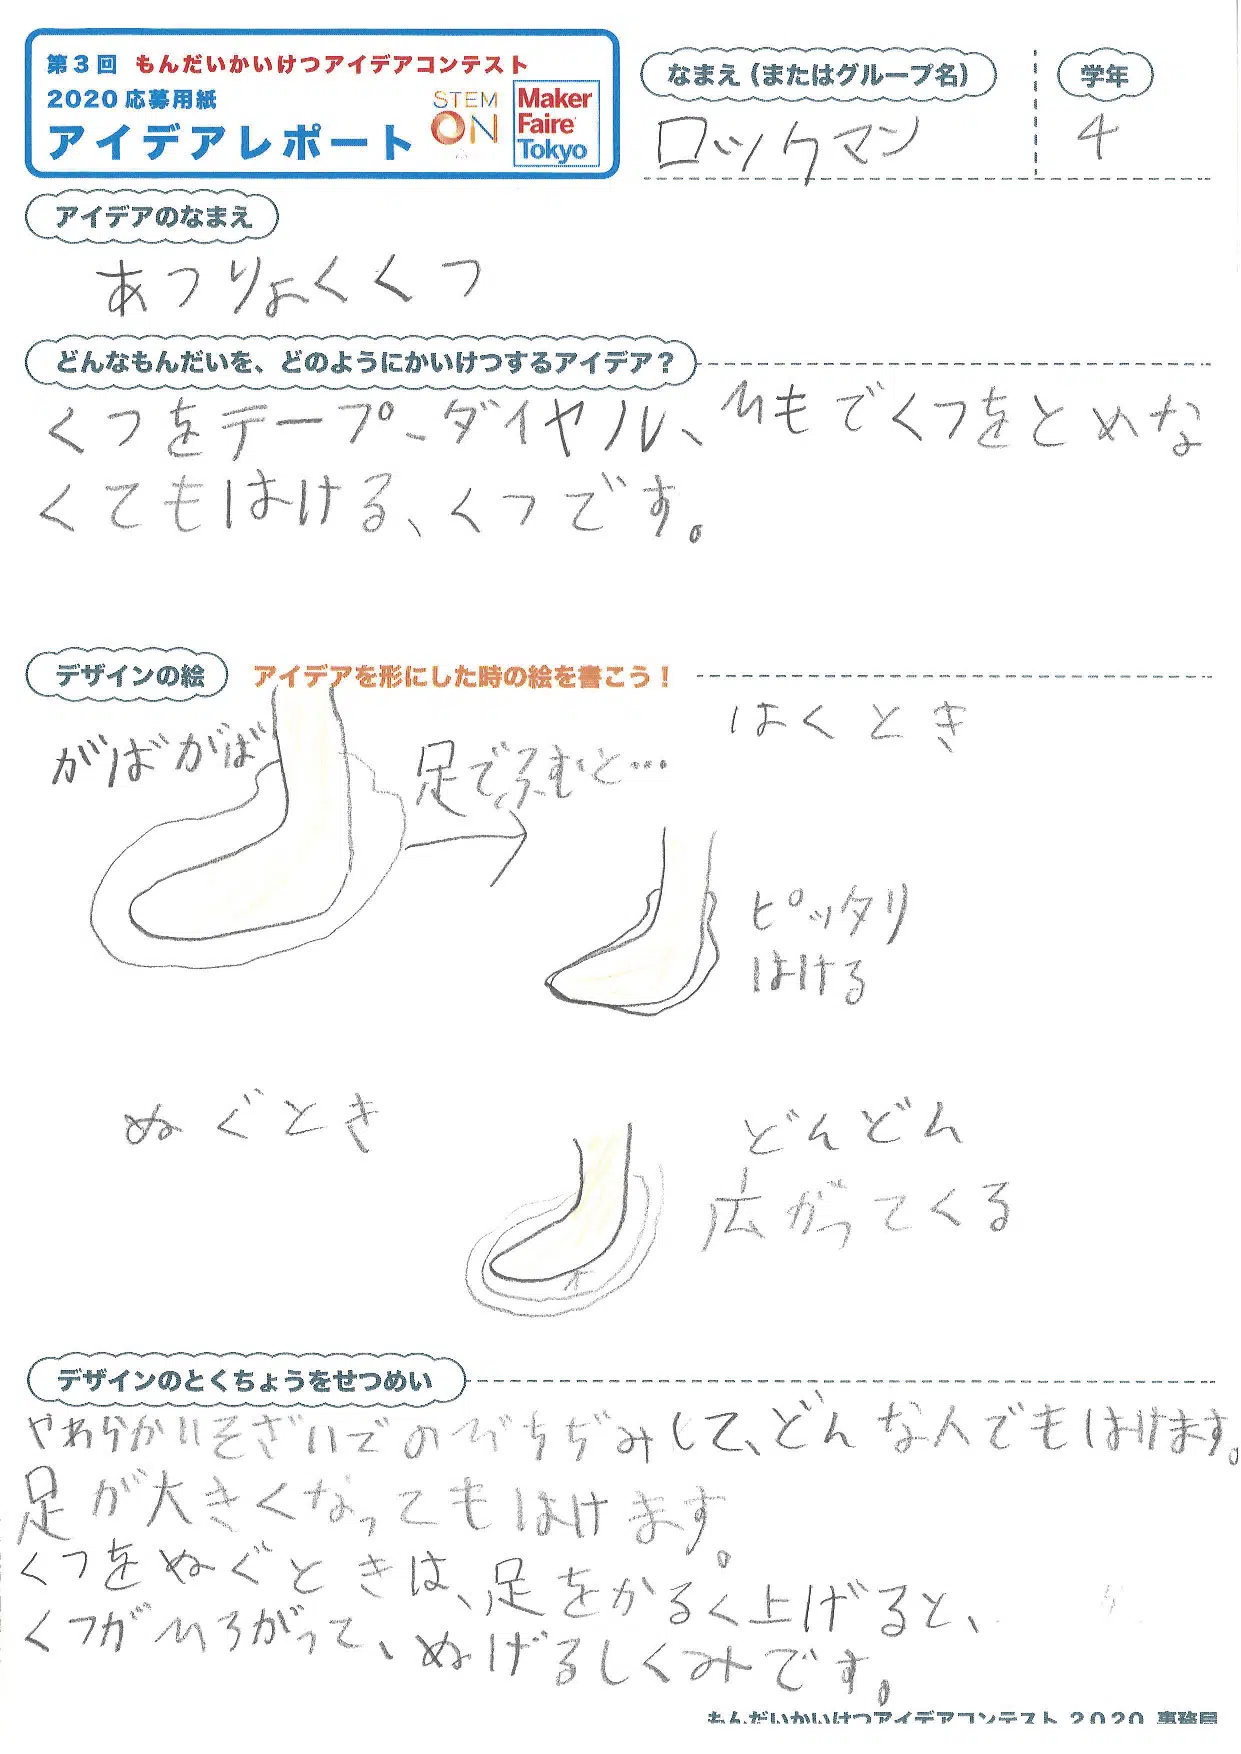 第3回 もんだいかいけつアイデアコンテスト
2020応募用紙
アイデアレポート
STEM ON
Maker Faire Tokyo
なまえ(またはグループ名)
学年
ロックマン
4
アイデアのなまえ
あつりょくくつ
どんなもんだいを、どのようにかいけつするアイデア?
くつをテープ、ダイヤル、ひもでくつをとめな
くてもはける、くつです。
デザインの絵 アイデアを形にした時の絵を書こう!
はくとき
がばがば
足でふむと…
ピッタリ
はける
ぬぐとき
どんどん
広がってくる
デザインのとくちょうをせつめい
やわらかいそざいでのびちぢみして、どんな人でもはけます。
足が大きくなってもはけます。
くつをぬぐときは、足をかるく上げると、
くつがひろがって、ぬげるしくみです。
もんだいかいけつアイデアコンテスト 2020 事務局